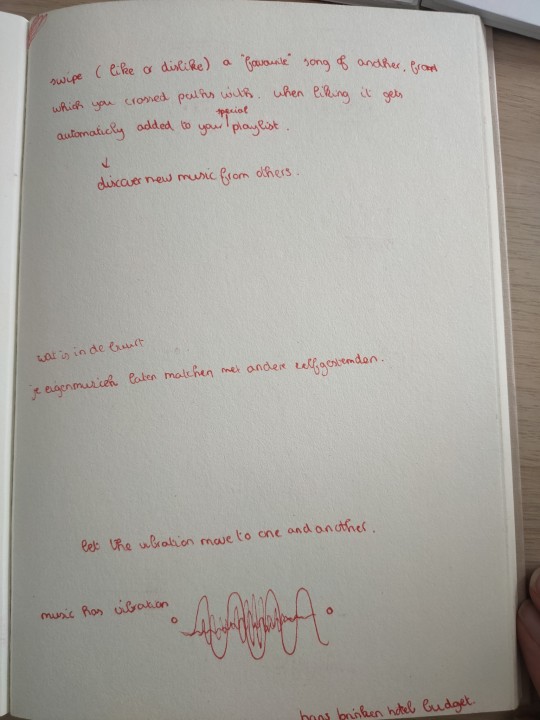 swipe (like or dislike) a "favourite" song of another, from
which you crossed paths with. when liking it gets
automaticly added to your special playlist.
↓
discover new music from others.
wat is in de buurt
je eigen muziek laten matchen met andere zelfgestemden.
let the vibration move to one and another.
music has vibration
hans brinker hotel budget.